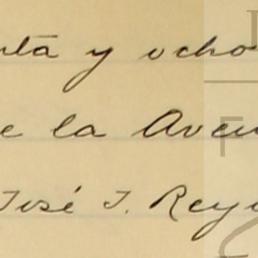 nta y ocho
e la Aven
José T. Rey